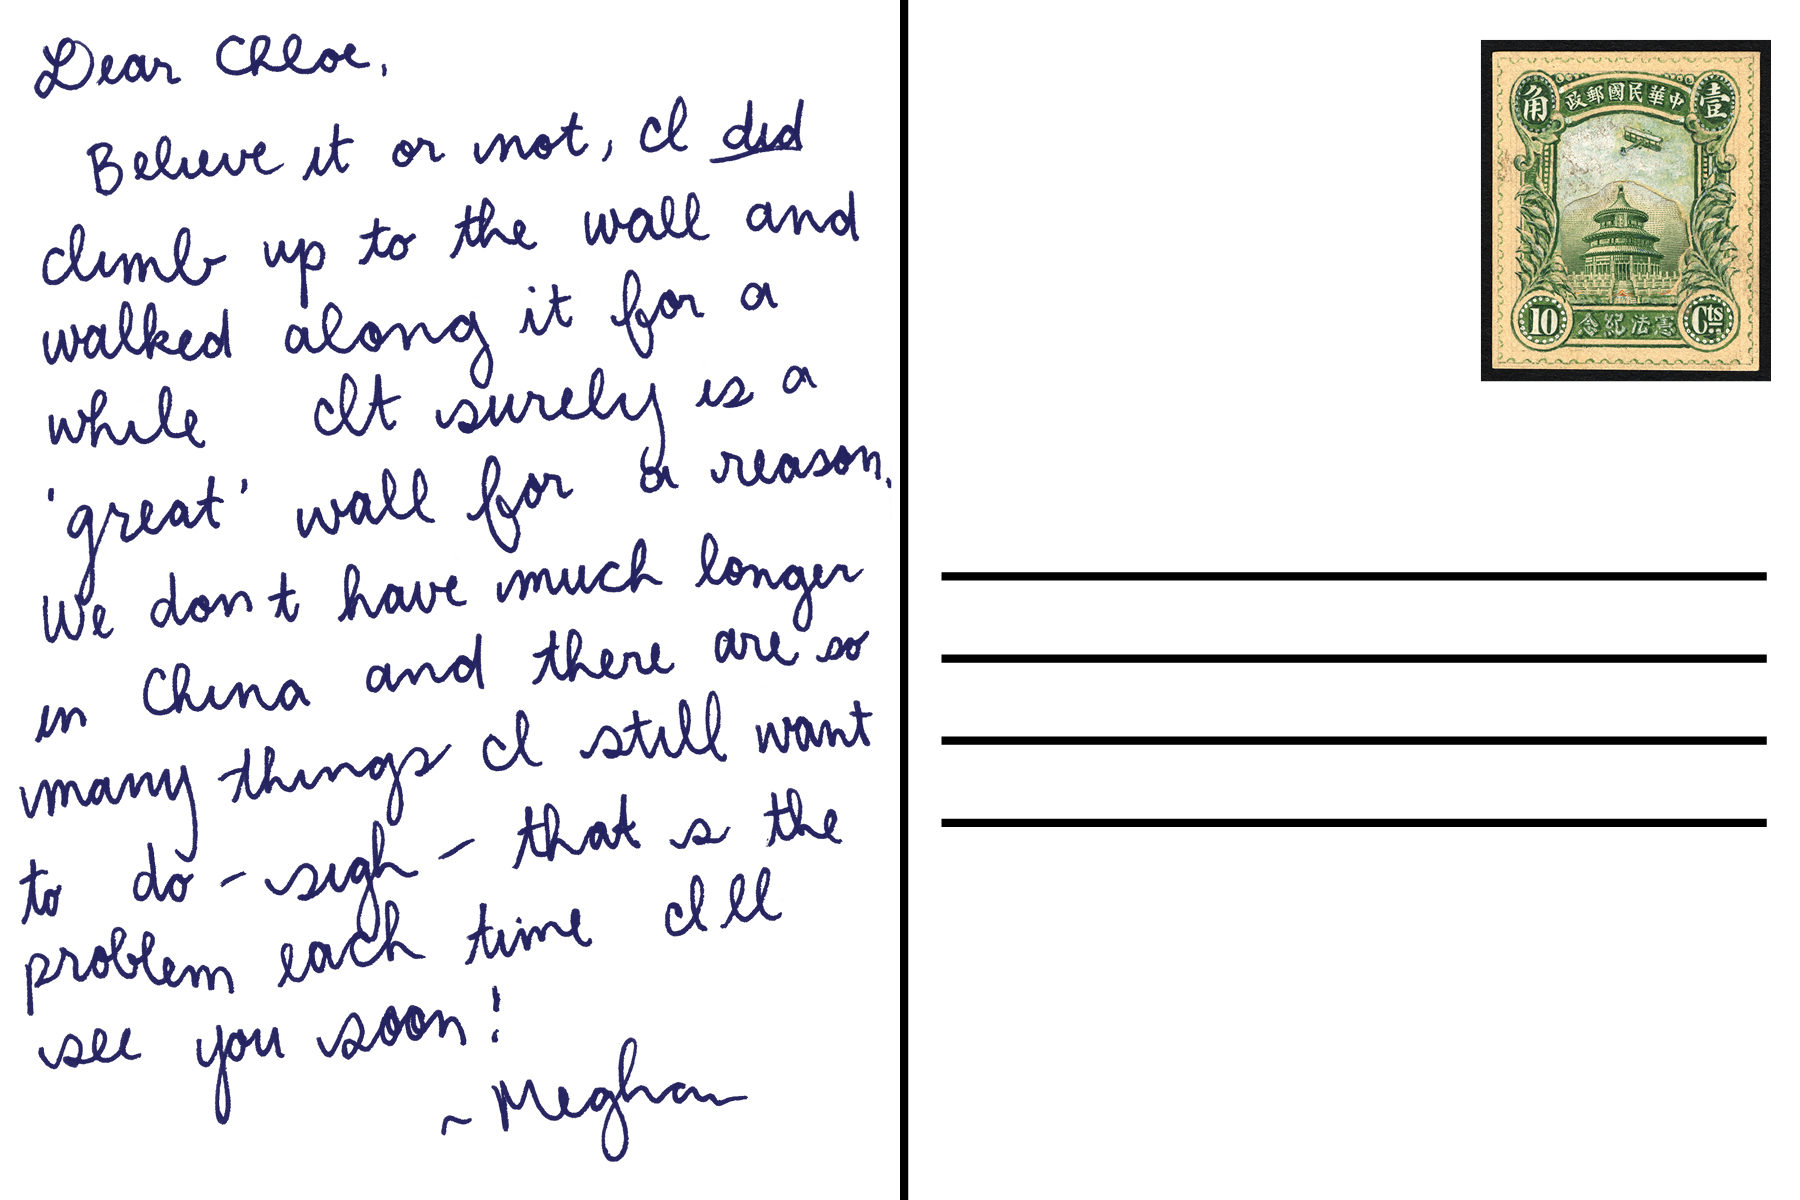 Dear Chloe,
Believe it or not, I did
climb up to the wall and
walked along it for a
while It surely is a
'great' wall for a reason.
We don t have much longer
in China and there are so
many things I still want
to do - sigh - that s the
problem each time I ll
see you soon!
~ Meghan
角 政郵國民華中 壹
10 念紀法憲 Cts